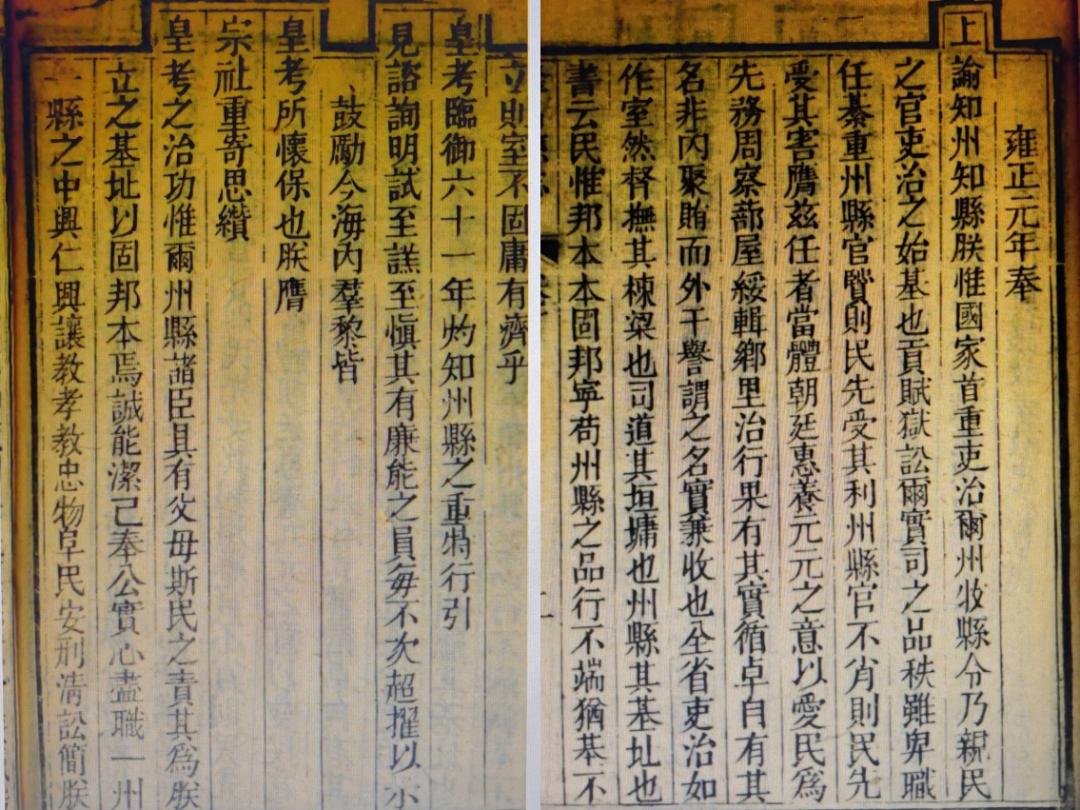 雍正元年奉
上諭知州知縣朕惟國家首重吏治爾州牧縣令乃親民
之官吏治之始基也貢賦獄訟爾實司之品秩雖卑職
任綦重州縣官賢則民先受其利州縣官不肖則民先
受其害膺兹任者當體朝廷惠養元元之意以愛民爲
先務周察蔀屋綏輯鄉里治行果有其實循卓自有其
名非内聚賄而外干譽謂之名實兼收也全省吏治如
作室然督撫其棟梁也司道其垣墉也州縣其基址也
書云民惟邦本本固邦寧苟州縣之品行不端猶基不
立則室不固庸有濟乎
皇考臨御六十一年灼知州縣之重特行引
見諮詢明試至謹至慎其有廉能之員每不次超擢以示
鼓勵今海内羣黎皆
皇考所懷保也朕膺
宗社重寄思纘
皇考之治功惟爾州縣諸臣具有父母斯民之責其爲朕
立之基址以固邦本焉誠能潔己奉公實心盡職一州
一縣之中興仁興讓教孝教忠物阜民安刑清訟簡朕